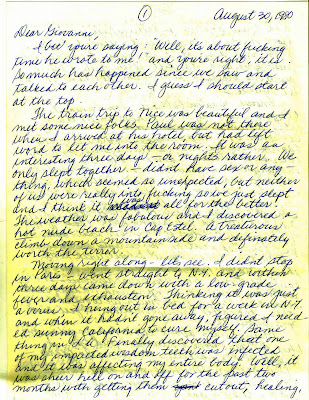 ①
August 30, 1980
Dear Giovanni,
I bet you're saying; "Well, it's about fucking
time he wrote to me!" and you're right; it is.
So much has happened since we saw and
talked to each other. I guess I should start
at the top.
The train trip to Nice was beautiful and I
met some nice folks. Paul was not there
when I arrived at his hotel but had left
word to let me into the room. It was an
interesting three days - or nights rather. We
only slept together - didn't have sex or any
thing, which seemed so unexpected, but neither
of us were really into fucking so we just slept
and I think it was all for the better.
The weather was fabulous and I discovered a
hot nude beach in Cap Estel. A treatirous
climb down a mountainside and definately
worth the terror.
Moving right along - let's see. I didn't stop
in Paris - went straight to N.Y. and within
three days came down with a low-grade
fever and exhaustion. Thinking it was just
a virus I hung out in bed for a week in N.Y.
and when it hadn't gone away, figured I need
ed sunny California to cure myself. Same
thing in L.A. Finally discovered that one
of my impacted wisdom teeth was infected
and it was affecting my entire body. Well, it
was sheer hell on and off for the past two
months with getting them cut out, healing,